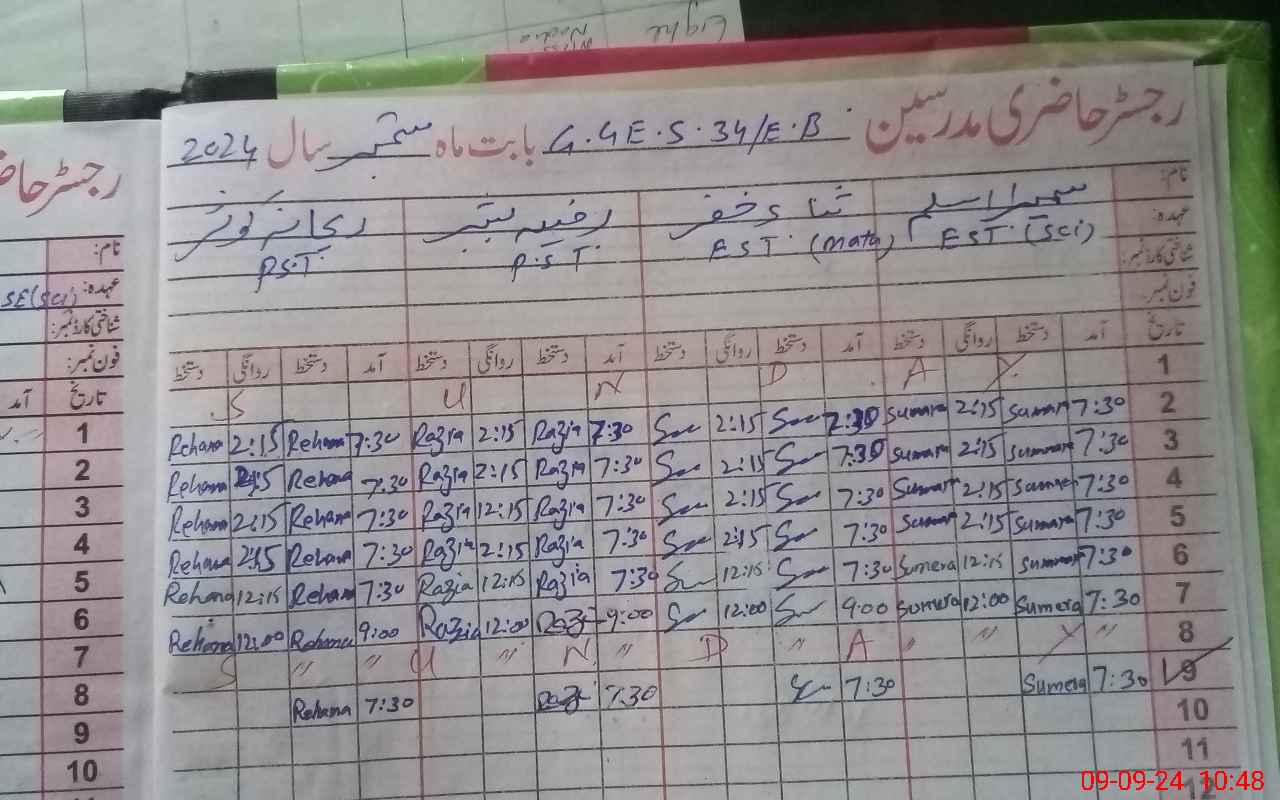 Light
Miss Nadia
رجسٹر حاضری مدرسین G.GE.S.34/E.B بابت ماہ ستمبر سال 2024
رجسٹر حاضری
نام: سمیرا اسلم ثناء خضر رضیہ ریحانہ کوثر
عہدہ: EST (Sci) EST (Math) P.S.T P.S.T
شناختی کارڈ نمبر:
فون نمبر:
تاریخ آمد دستخط روانگی دستخط آمد دستخط روانگی دستخط آمد دستخط روانگی دستخط آمد دستخط روانگی دستخط
نام:
عہدہ: SE(Sci)
شناختی کارڈ نمبر:
فون نمبر:
تاریخ آمد
S U N D A Y 1
Rehana 2:15 Rehana 7:30 Razia 2:15 Razia 7:30 2:15 7:30 Sumara 2:15 Sumara 7:30 2
Rehana 2:15 Rehana 7:30 Razia 2:15 Razia 7:30 2:15 7:30 Sumara 2:15 Sumara 7:30 3
Rehana 2:15 Rehana 7:30 Razia 12:15 Razia 7:30 2:15 7:30 Sumara 2:15 Sumara 7:30 4
Rehana 2:15 Rehana 7:30 Razia 2:15 Razia 7:30 2:15 7:30 Sumara 2:15 Sumara 7:30 5
Rehana 12:15 Rehana 7:30 Razia 12:15 Razia 7:30 12:15 7:30 Sumera 12:15 Sumera 7:30 6
Rehana 12:00 Rehana 9:00 Razia 12:00 Razia 9:00 12:00 9:00 Sumera 12:00 Sumera 7:30 7
S " " U " N " D " A " Y " 8
Rehana 7:30 Razi 7:30 7:30 Sumera 7:30 9
10
11
12
1
2
3
4
5
6
7
8
9
10
09-09-24 10:48